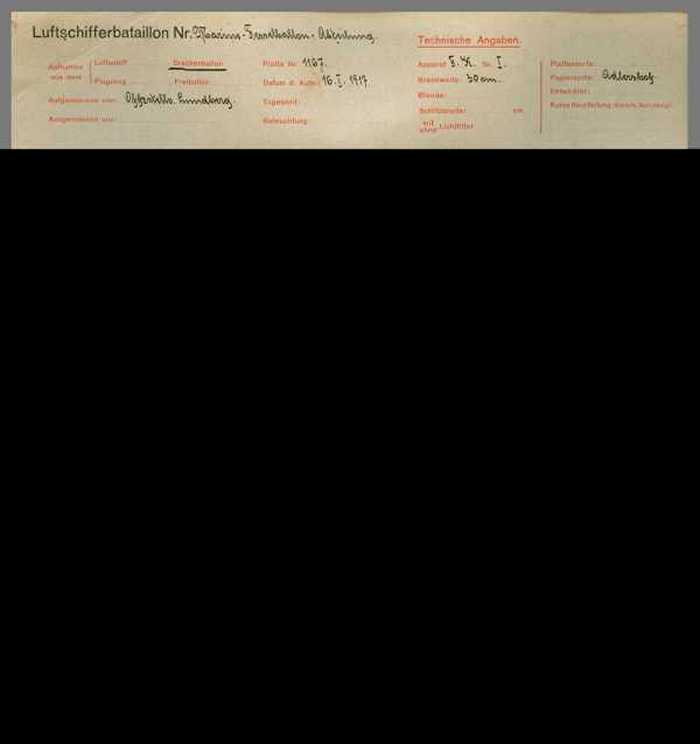 Luftschifferbataillon Nr. Marine-Fesselballon-Abteilung.
Technische Angaben.
Aufnahme aus dem Luftschiff Drachenballon
Flugzeug Freiballon
Aufgenommen von:
Aufgenommen um:
Platte Nr. 1107.
Datum d. Aufn. 16. I. 1917
Tageszeit:
Beleuchtung:
Apparat F. K. Nr. I.
Brennweite: 50 cm.
Blende:
Schlitzbreite: cm
mit ohne Lichtfilter
Plattensorte:
Papiersorte: Adlershof.
Entwickler: